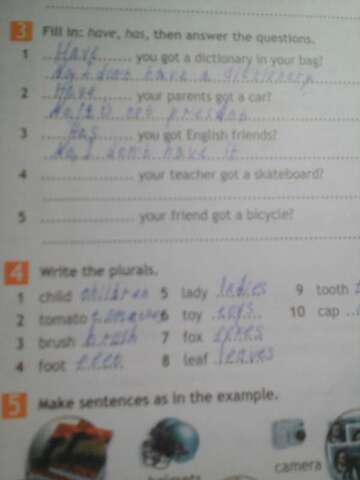 3 Fill in: have, has, then answer the questions.
1 Have you got a dictionary in your bag?
have a dictionary
2 Have your parents got a car?
3 Has you got English friends?
No, I don't have it
4 ............... your teacher got a skateboard?
5 ............... your friend got a bicycle?
4 Write the plurals.
1 child children 5 lady ladies 9 tooth
2 tomato 6 toy toys 10 cap
3 brush brush 7 fox
4 foot 8 leaf leaves
5 Make sentences as in the example.
helmets
camera